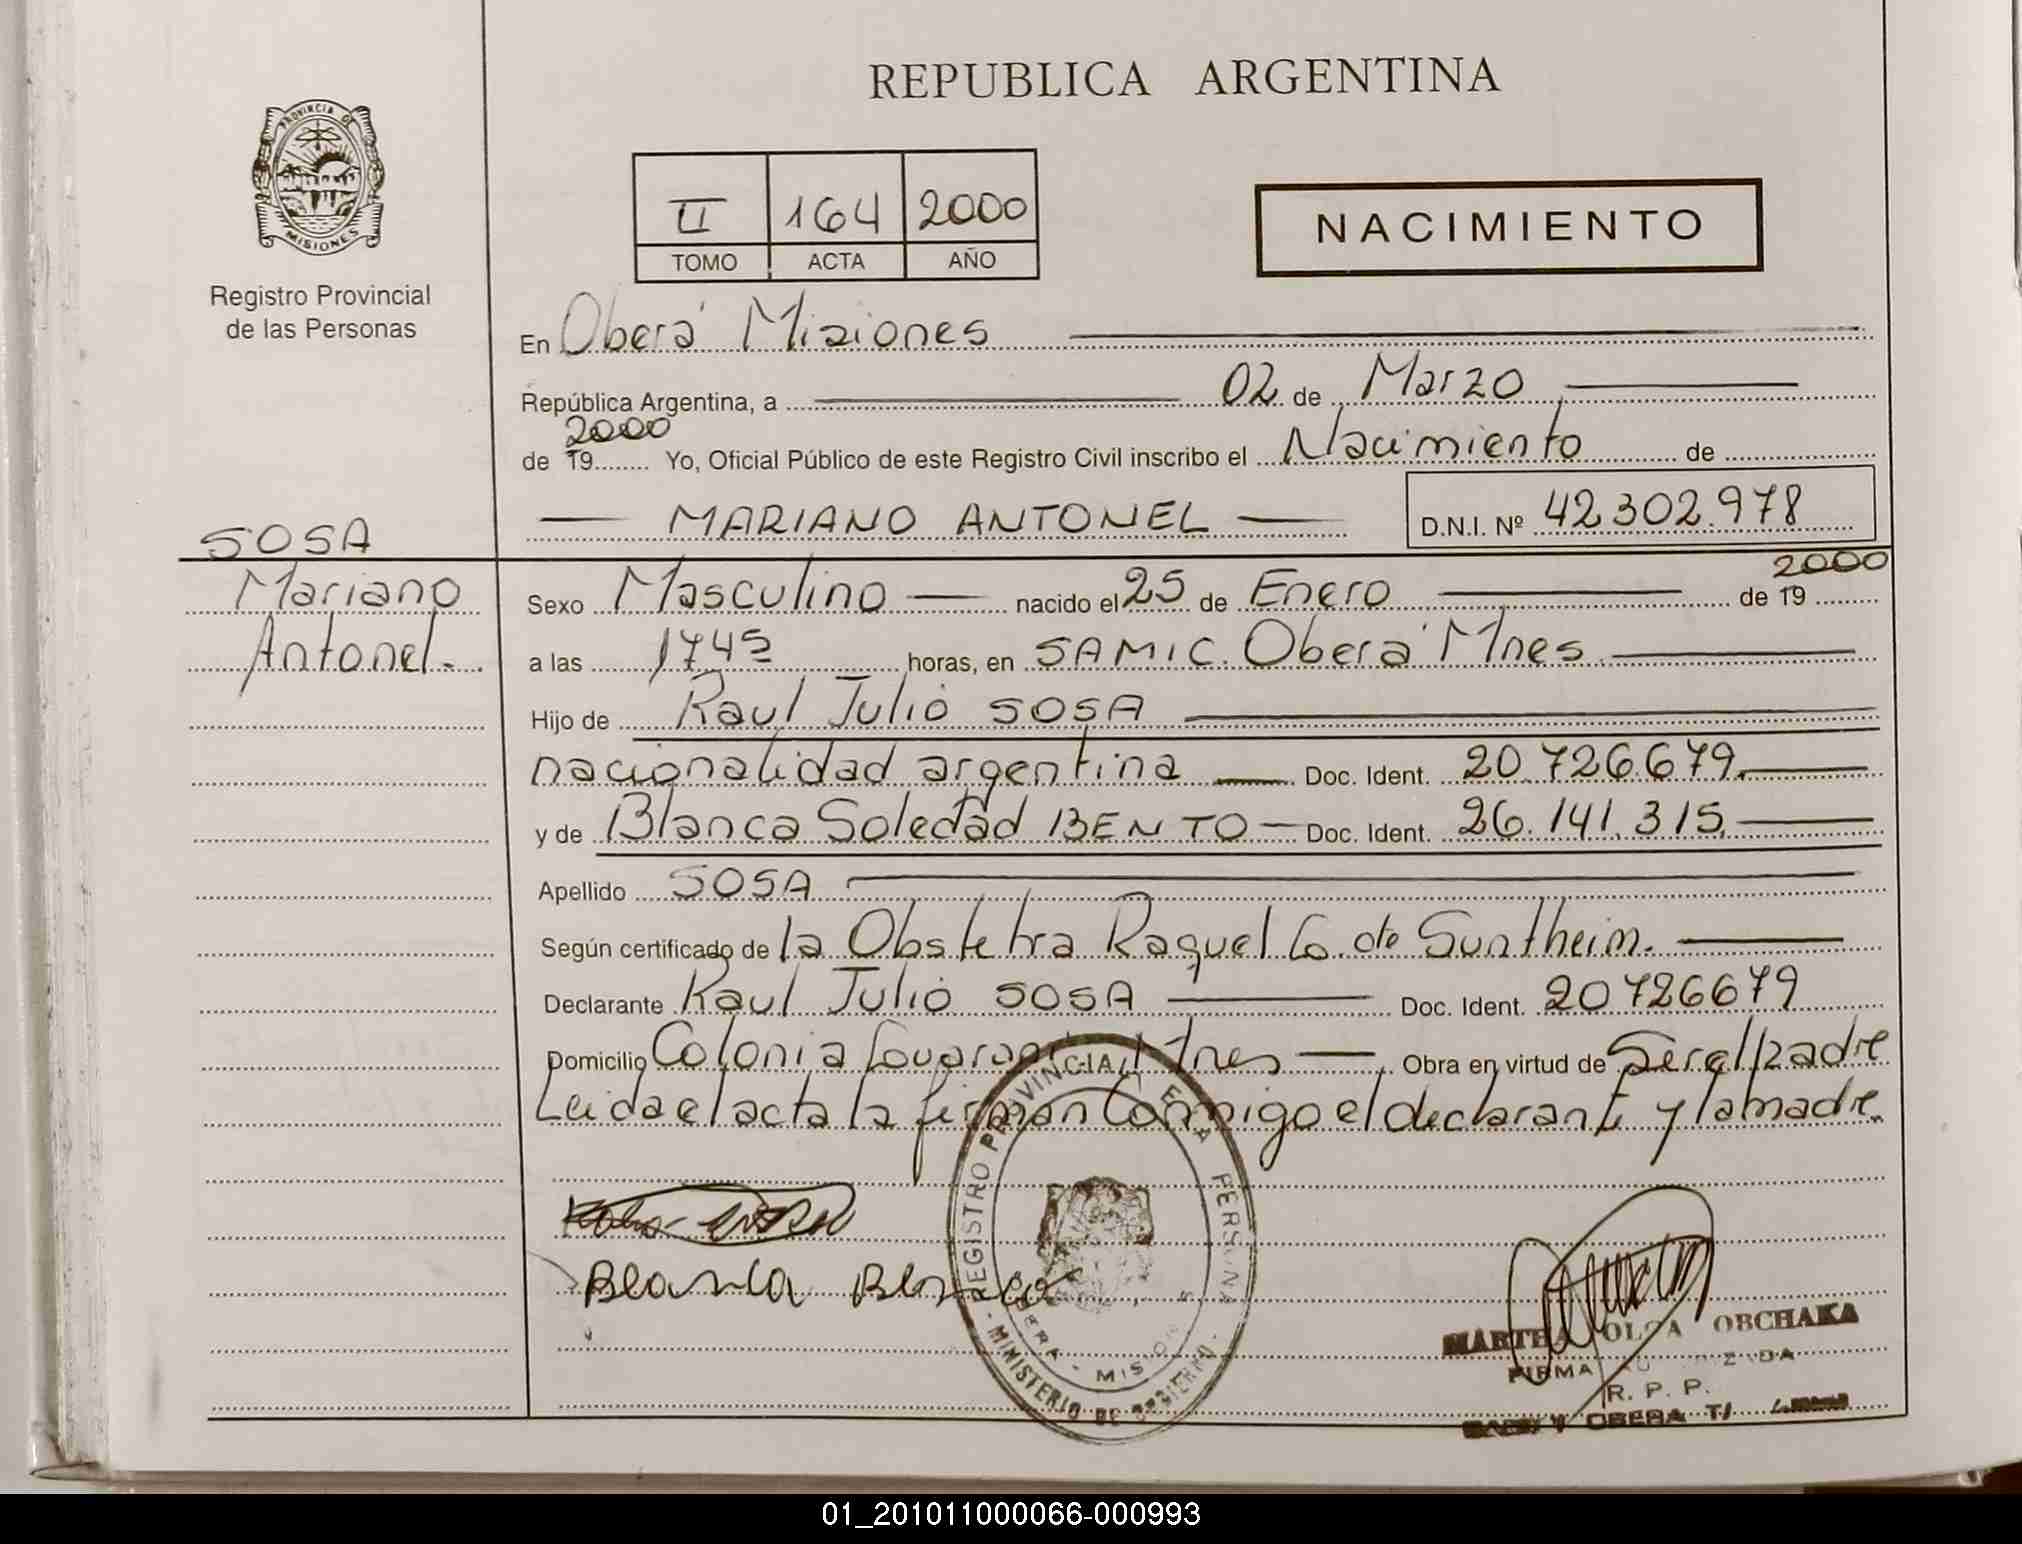 REPUBLICA ARGENTINA
PROVINCIA DE
MISIONES
Registro Provincial
de las Personas
II 164 2000
TOMO ACTA AÑO
NACIMIENTO
En Oberá Misiones
República Argentina, a 02 de Marzo
2000
de 19........ Yo, Oficial Público de este Registro Civil inscribo el Nacimiento de
MARIANO ANTONEL D.N.I. Nº 42.302.978
SOSA
Mariano
Antonel.
2000
Sexo Masculino nacido el 25 de Enero de 19
a las 1745 horas, en SAMIC. Oberá Mnes
Hijo de Raul Julio SOSA
nacionalidad argentina Doc. Ident. 20.726.679.
y de Blanca Soledad BENTO Doc. Ident. 26.141.315.
Apellido SOSA
Según certificado de la Obstetra Raquel G. de Suntheim.
Declarante Raul Julio SOSA Doc. Ident. 20726679
Domicilio Colonia Mnes Obra en virtud de Ser el padre
Leida el acta la firman conmigo el declarante y la madre.
Blanca Bento
REGISTRO PROVINCIAL DE LAS PERSONAS
OBERA - MISIONES
- MINISTERIO DE GOBIERNO -
MARTHA OLGA OBCHAKA
FIRMA AUTORIZADA
R. P. P.
OBERA
01_201011000066-000993